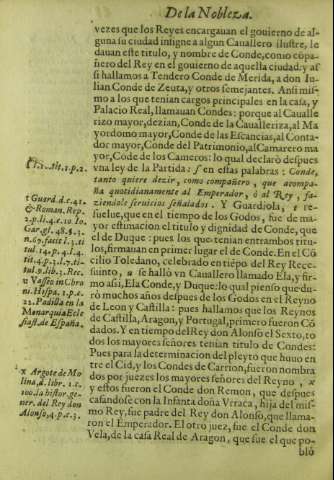 De la Nobleza.
vezes que los Reyes encargauan el gouierno de al-
guna su ciudad insigne a algun Cauallero ilustre, le
dauan este titulo, y nombre de Conde, como cōpa-
ñero del Rey en el gouierno de aquella ciudad: y as-
si hallamos a Tendero Conde de Merida, a don Iu-
lian Conde de Zeuta, y otros semejantes. Ansi mis-
mo a los que tenian cargos principales en la casa, y
Palacio Real, llamauan Condes: porque al Caualle
rizo mayor, dezian, Conde de la Caualleriza, al Ma
yordomo mayor, Conde de las Escancias, al Conta-
dor mayor, Conde del Patrimonio, al Camarero ma
yor, Code de los Cameros: lo qual declarò despues
vna ley de la Partida: s en estas palabras: Conde,
tanto quiere dezir, como compañero, que acompa-
ña quotidianamente al Emperador, ò al Rey, fa-
ziendole seruicios señalados. Y Guardiola, t re-
suelue, que en el tiempo de los Godos, fue de ma-
yor estimacion el titulo y dignidad de Conde, que
el de Duque: pues los que tenian entrambos titu-
los, firmauan en primer lugar el de Conde. En el Cō
cilio Toledano, celebrado en tiēpo del Rey Rece-
suinto, u se hallò vn Cauallero llamado Ela, y fir-
mo assi, Ela Conde, y Duque: lo qual pienso que du-
rò muchos años despues de los Godos en el Reyno
de Leon y Castilla: pues hallamos que los Reynos
de Castilla, Aragon, y Portugal, primero fueron Cō
dados. Y en tiempo del Rey don Alonso el Sexto, to
dos los mayores señores tenian titulo de Condes:
Pues para la determinacion del pleyto que huuo en
tre el Cid, y los Condes de Carrion, fueron nombra
dos por juezes los mayores señores del Reyno, x
y estos fueron el Conde don Remon, que despues
casandose con la Infanta doña Vrraca, hija del mis-
mo Rey, fue padre del Rey don Alonso, que llama-
ron el Emperador. El otro juez, fue el Conde don
Vela, de la casa Real de Aragon, que fue el que po-
blò
t Guard. d. c. 41.
& Roman. Rep.
u Vasseo in Chro
n. Hispa.
22. Padilla en la
Manarquia Ecle
siast. de España.
x Argote de Mo
lina, d. libr. 1. c.
100. la histor. ge-
ner. del Rey don
Alonso, 4. p. c. 3.